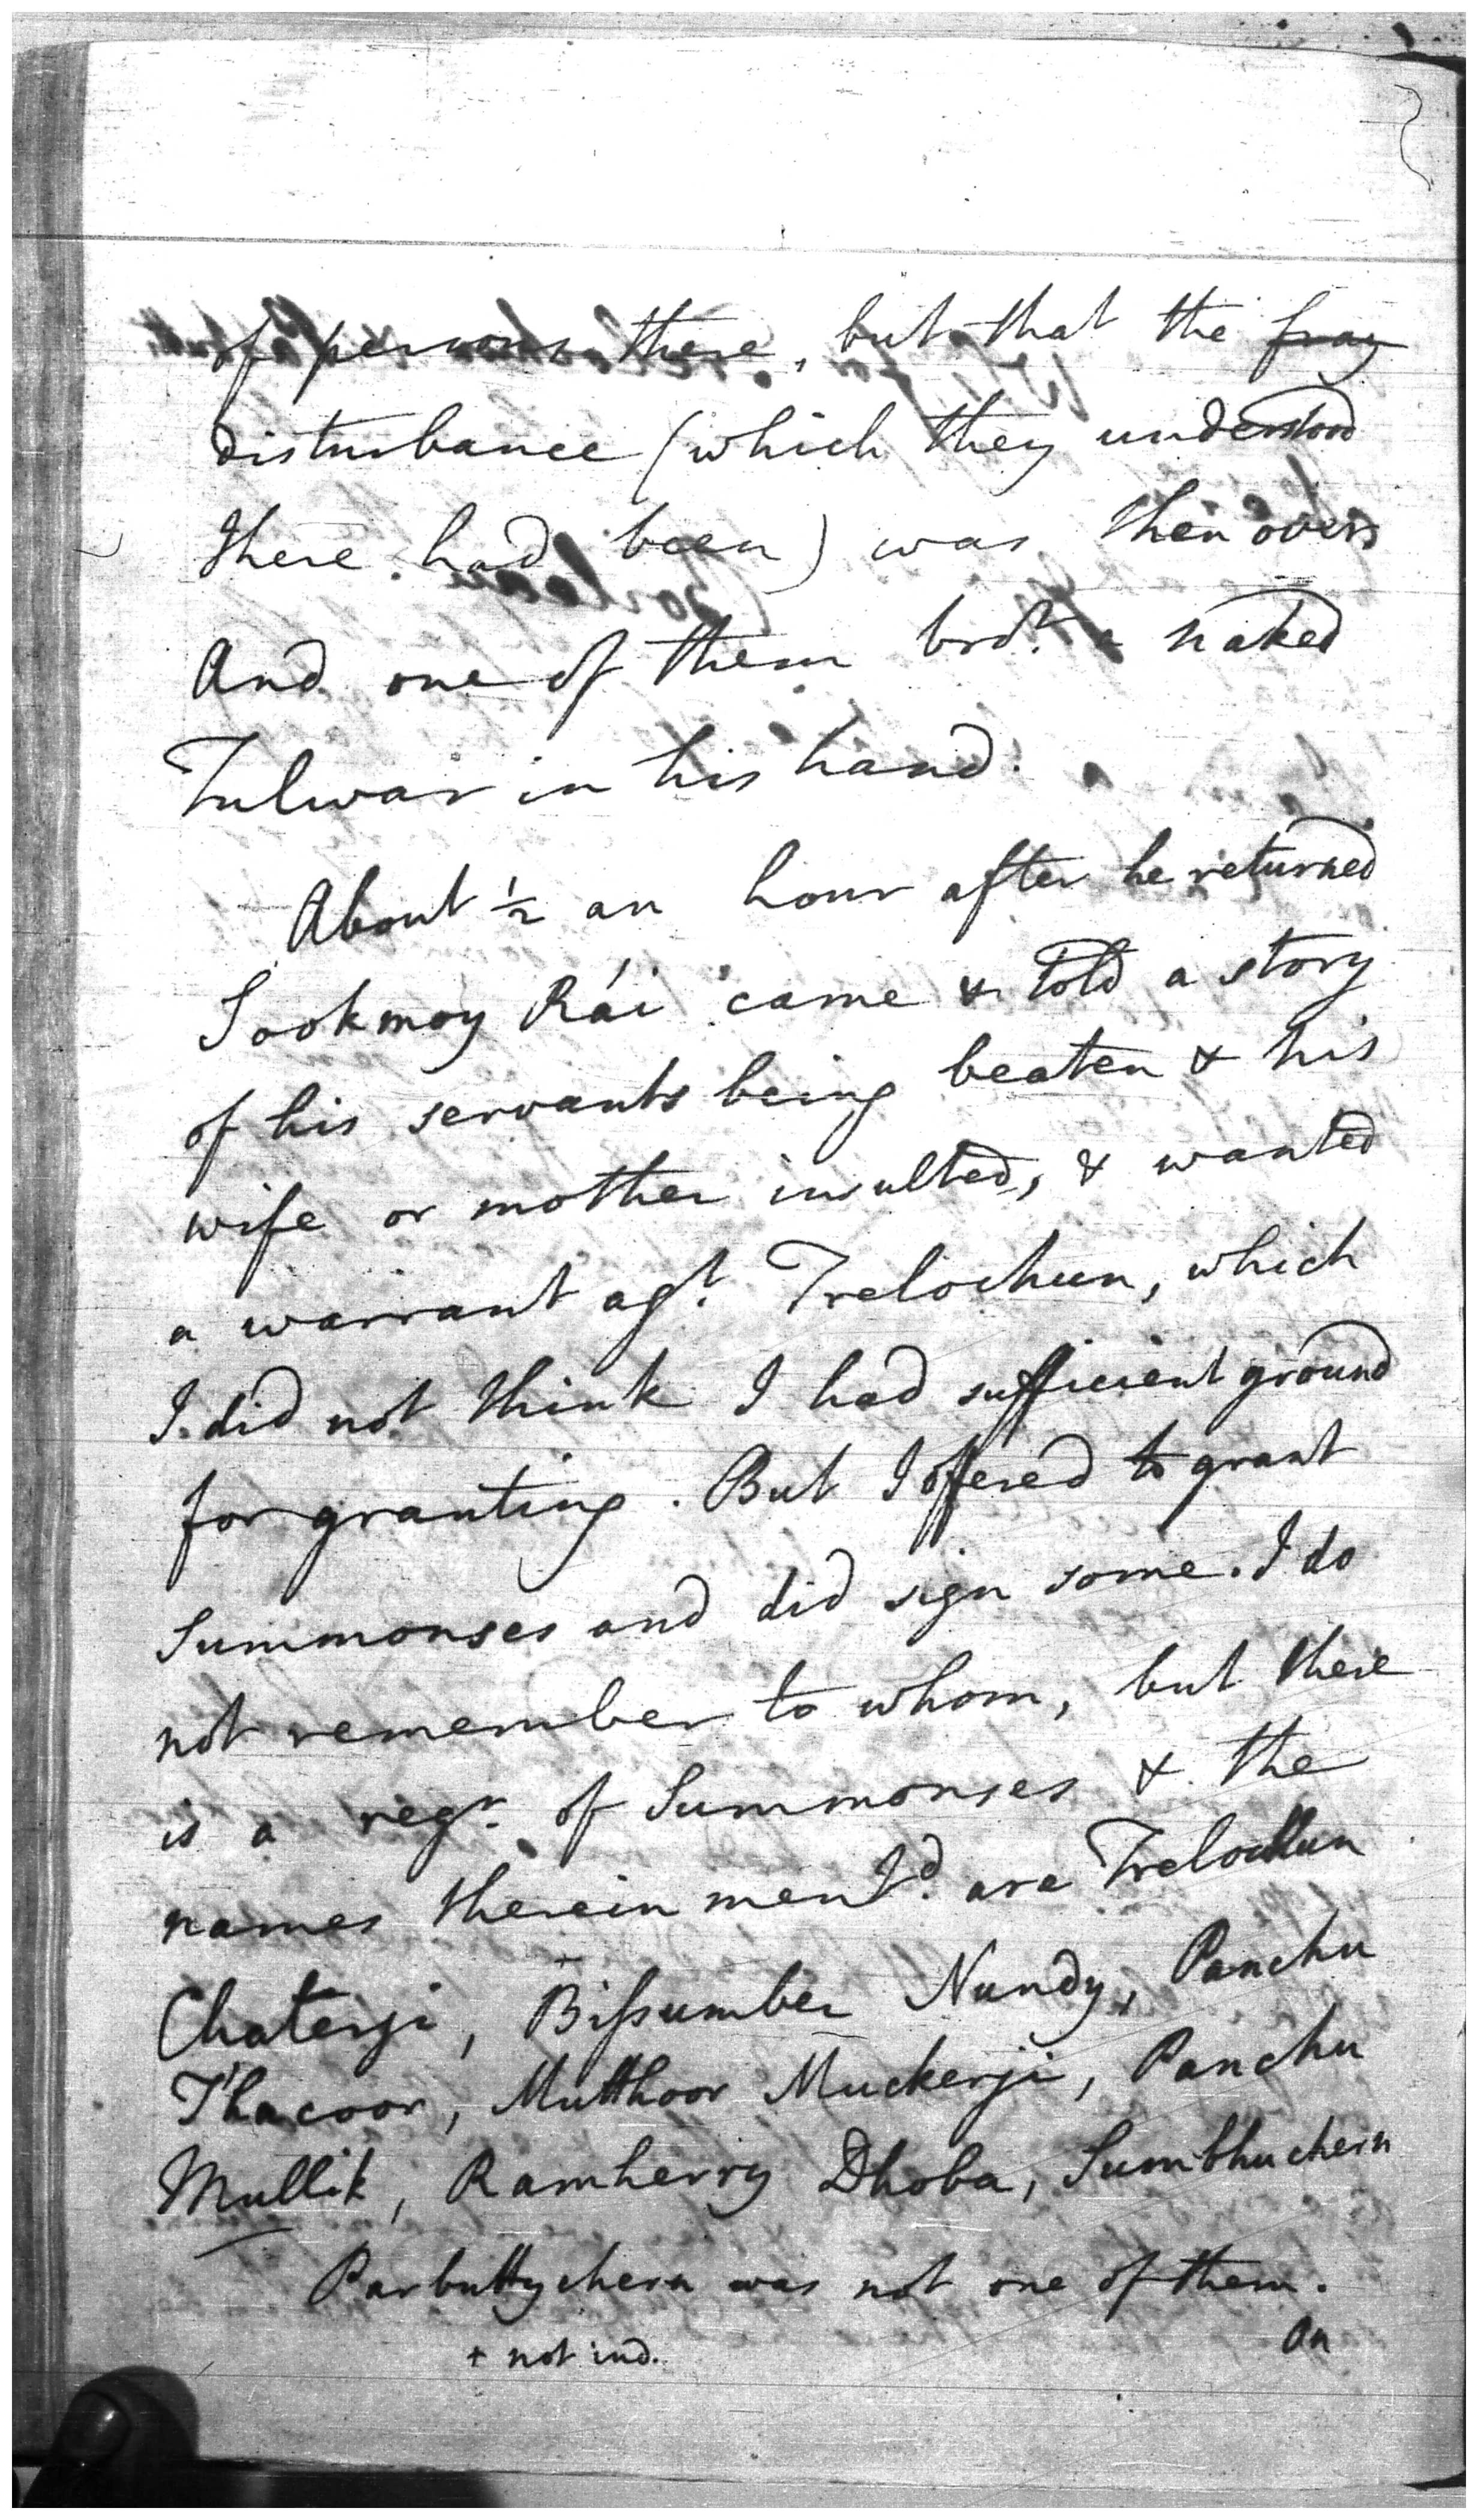 of persons there, but that the fray
disturbance (which they understood
there had been) was then over
And one of them bro.t a naked
Tulwar in his hand.
About ½ an hour after he returned
Sookmoy Rái came & told a story
of his servants being beaten & his
wife or mother insulted, & wanted
a warrant ag.t Trelochun, which
I did not think I had sufficient ground
for granting. But I offered to grant
Summonses and did sign some. I do
not remember to whom, but there
is a reg.r of Summonses & the
names therein ment.d are Trelochun
Chaterji, Bissumber Nundy, Panchu
Thacoor, Mutthoor Muckerji, Panchu
Mullik, Ramherry Dhoba, Sumbhuchern
Parbuttychern was not one of them.
+ not ind.
On